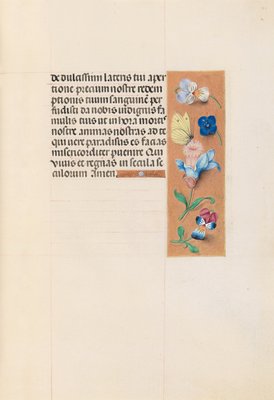 de dulcissimi lateris tui aper
tione precium nostre redem
ptionis tuum sanguinem per
fudisti da nobis indignis fa
mulis tuis ut in hora mortis
nostre animas nostras ad te
qui vere paradisus es facias
misericorditer pervenire Qui
vivis et regnas in secula se
culorum amen